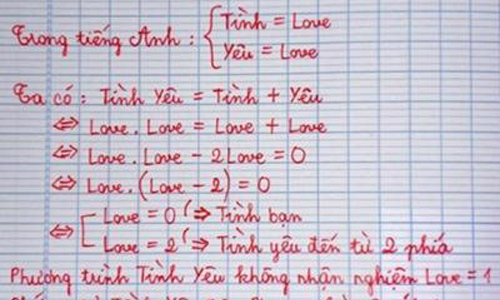 Tình = Love
Trong tiếng Anh :
Yêu = Love
Ta có : Tình Yêu = Tình + Yêu
⇔ Love . Love = Love + Love
⇔ Love . Love - 2Love = 0
⇔ Love . (Love - 2) = 0
Love = 0 (⇒ Tình bạn
⇔
Love = 2 (⇒ Tình yêu đến từ 2 phía
Phương trình Tình Yêu không nhận nghiệm Love = 1